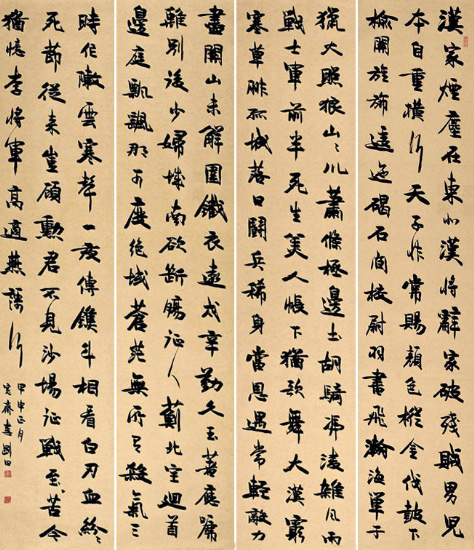 漢家煙塵在東北漢將辭家破殘賊男兒
本自重橫行天子非常賜顏色摐金伐鼓下
榆關旌旆逶迤碣石間校尉羽書飛瀚海單于
獵火照狼山山川蕭條極邊土胡騎憑陵雜風雨
戰士軍前半死生美人帳下猶歌舞大漠窮
塞草腓孤城落日鬥兵稀身當恩遇常輕敵力
盡關山未解圍鐵衣遠戍辛勤久玉箸應啼
離別後少婦城南欲斷腸征人薊北空迴首
邊庭飄飄那可度絕域蒼茫無所有殺氣三
時作陣雲寒聲一夜傳刁斗相看白刃血紛紛
死節從來豈顧勳君不見沙場征戰苦今
猶憶李將軍高適燕歌行
甲申正月